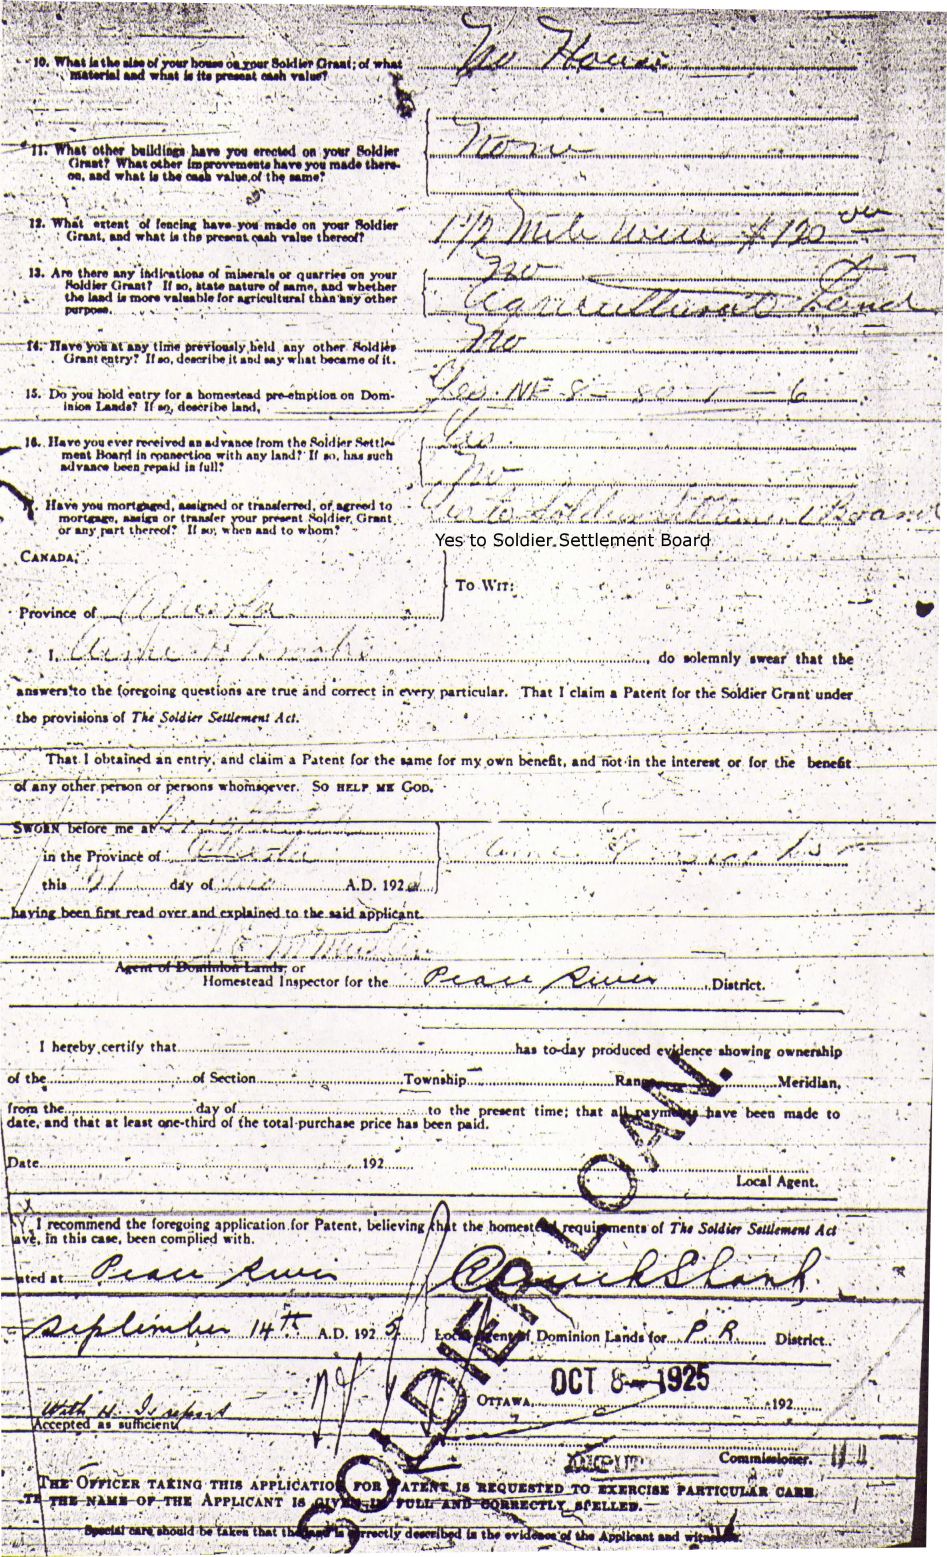 10. What is the size of your house on your Soldier Grant; of what No House
material and what is its present cash value?
11. What other buildings have you erected on your Soldier None
Grant? What other improvements have you made there-
on, and what is the cash value of the same?
12. What extent of fencing have you made on your Soldier 1 1/2 Mile wire $120
Grant, and what is the present cash value thereof?
13. Are there any indications of minerals or quarries on your No
Soldier Grant? If so, state nature of same, and whether Agricultural Land
the land is more valuable for agricultural than any other
purpose.
14. Have you at any time previously held any other Soldier No
Grant entry? If so, describe it and say what became of it.
15. Do you hold entry for a homestead pre-emption on Dom- Yes. NE 8 - 80 - 1 - 6
inion Lands? If so, describe land,
16. Have you ever received an advance from the Soldier Settle- Yes
ment Board in connection with any land? If so, has such No
advance been repaid in full?
17. Have you mortgaged, assigned or transferred, or agreed to Yes to Soldier Settlement Board
mortgage, assign or transfer your present Soldier Grant
or any part thereof? If so, when and to whom?
Yes to Soldier Settlement Board
CANADA,
TO WIT:
Province of Alberta
I, do solemnly swear that the
answers to the foregoing questions are true and correct in every particular. That I claim a Patent for the Soldier Grant under
the provisions of The Soldier Settlement Act.
That I obtained an entry, and claim a Patent for the same for my own benefit, and not in the interest or for the benefit
of any other person or persons whomsoever. SO HELP ME GOD.
SWORN before me at
in the Province of Alberta
this 21 day of A.D. 192
having been first read over and explained to the said applicant.
Agent of Dominion Lands, or
Homestead Inspector for the Peace River District.
I hereby certify that has to-day produced evidence showing ownership
of the of Section Township Range Meridian,
from the day of to the present time; that all payments have been made to
date, and that at least one-third of the total purchase price has been paid.
Date 192
Local Agent.
I recommend the foregoing application for Patent, believing that the homestead requirements of The Soldier Settlement Act
have, in this case, been complied with.
Dated at Peace River
September 14th A.D. 1925 Local Agent of Dominion Lands for P R District.
SOLDIER LOAN.
OCT 8 - 1925
OTTAWA, 192
With H.
Accepted as sufficient
Commissioner.
THE OFFICER TAKING THIS APPLICATION FOR PATENT IS REQUESTED TO EXERCISE PARTICULAR CARE
THE NAME OF THE APPLICANT IS GIVEN IN FULL AND CORRECTLY SPELLED.
Special care should be taken that the land is correctly described in the evidence of the Applicant and witnesses.